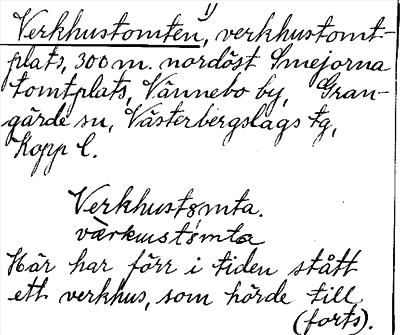 1)
Verkhustomten, verkhustomt-
plats, 300 m. nordöst Smejorna
tomtplats, Vännebo by, Gran-
gärde sn, Västerbergslags tg,
Kopp l.
Verkhustomta.
värkustomta
Här har förr i tiden stått
ett verkhus, som hörde till
(forts).